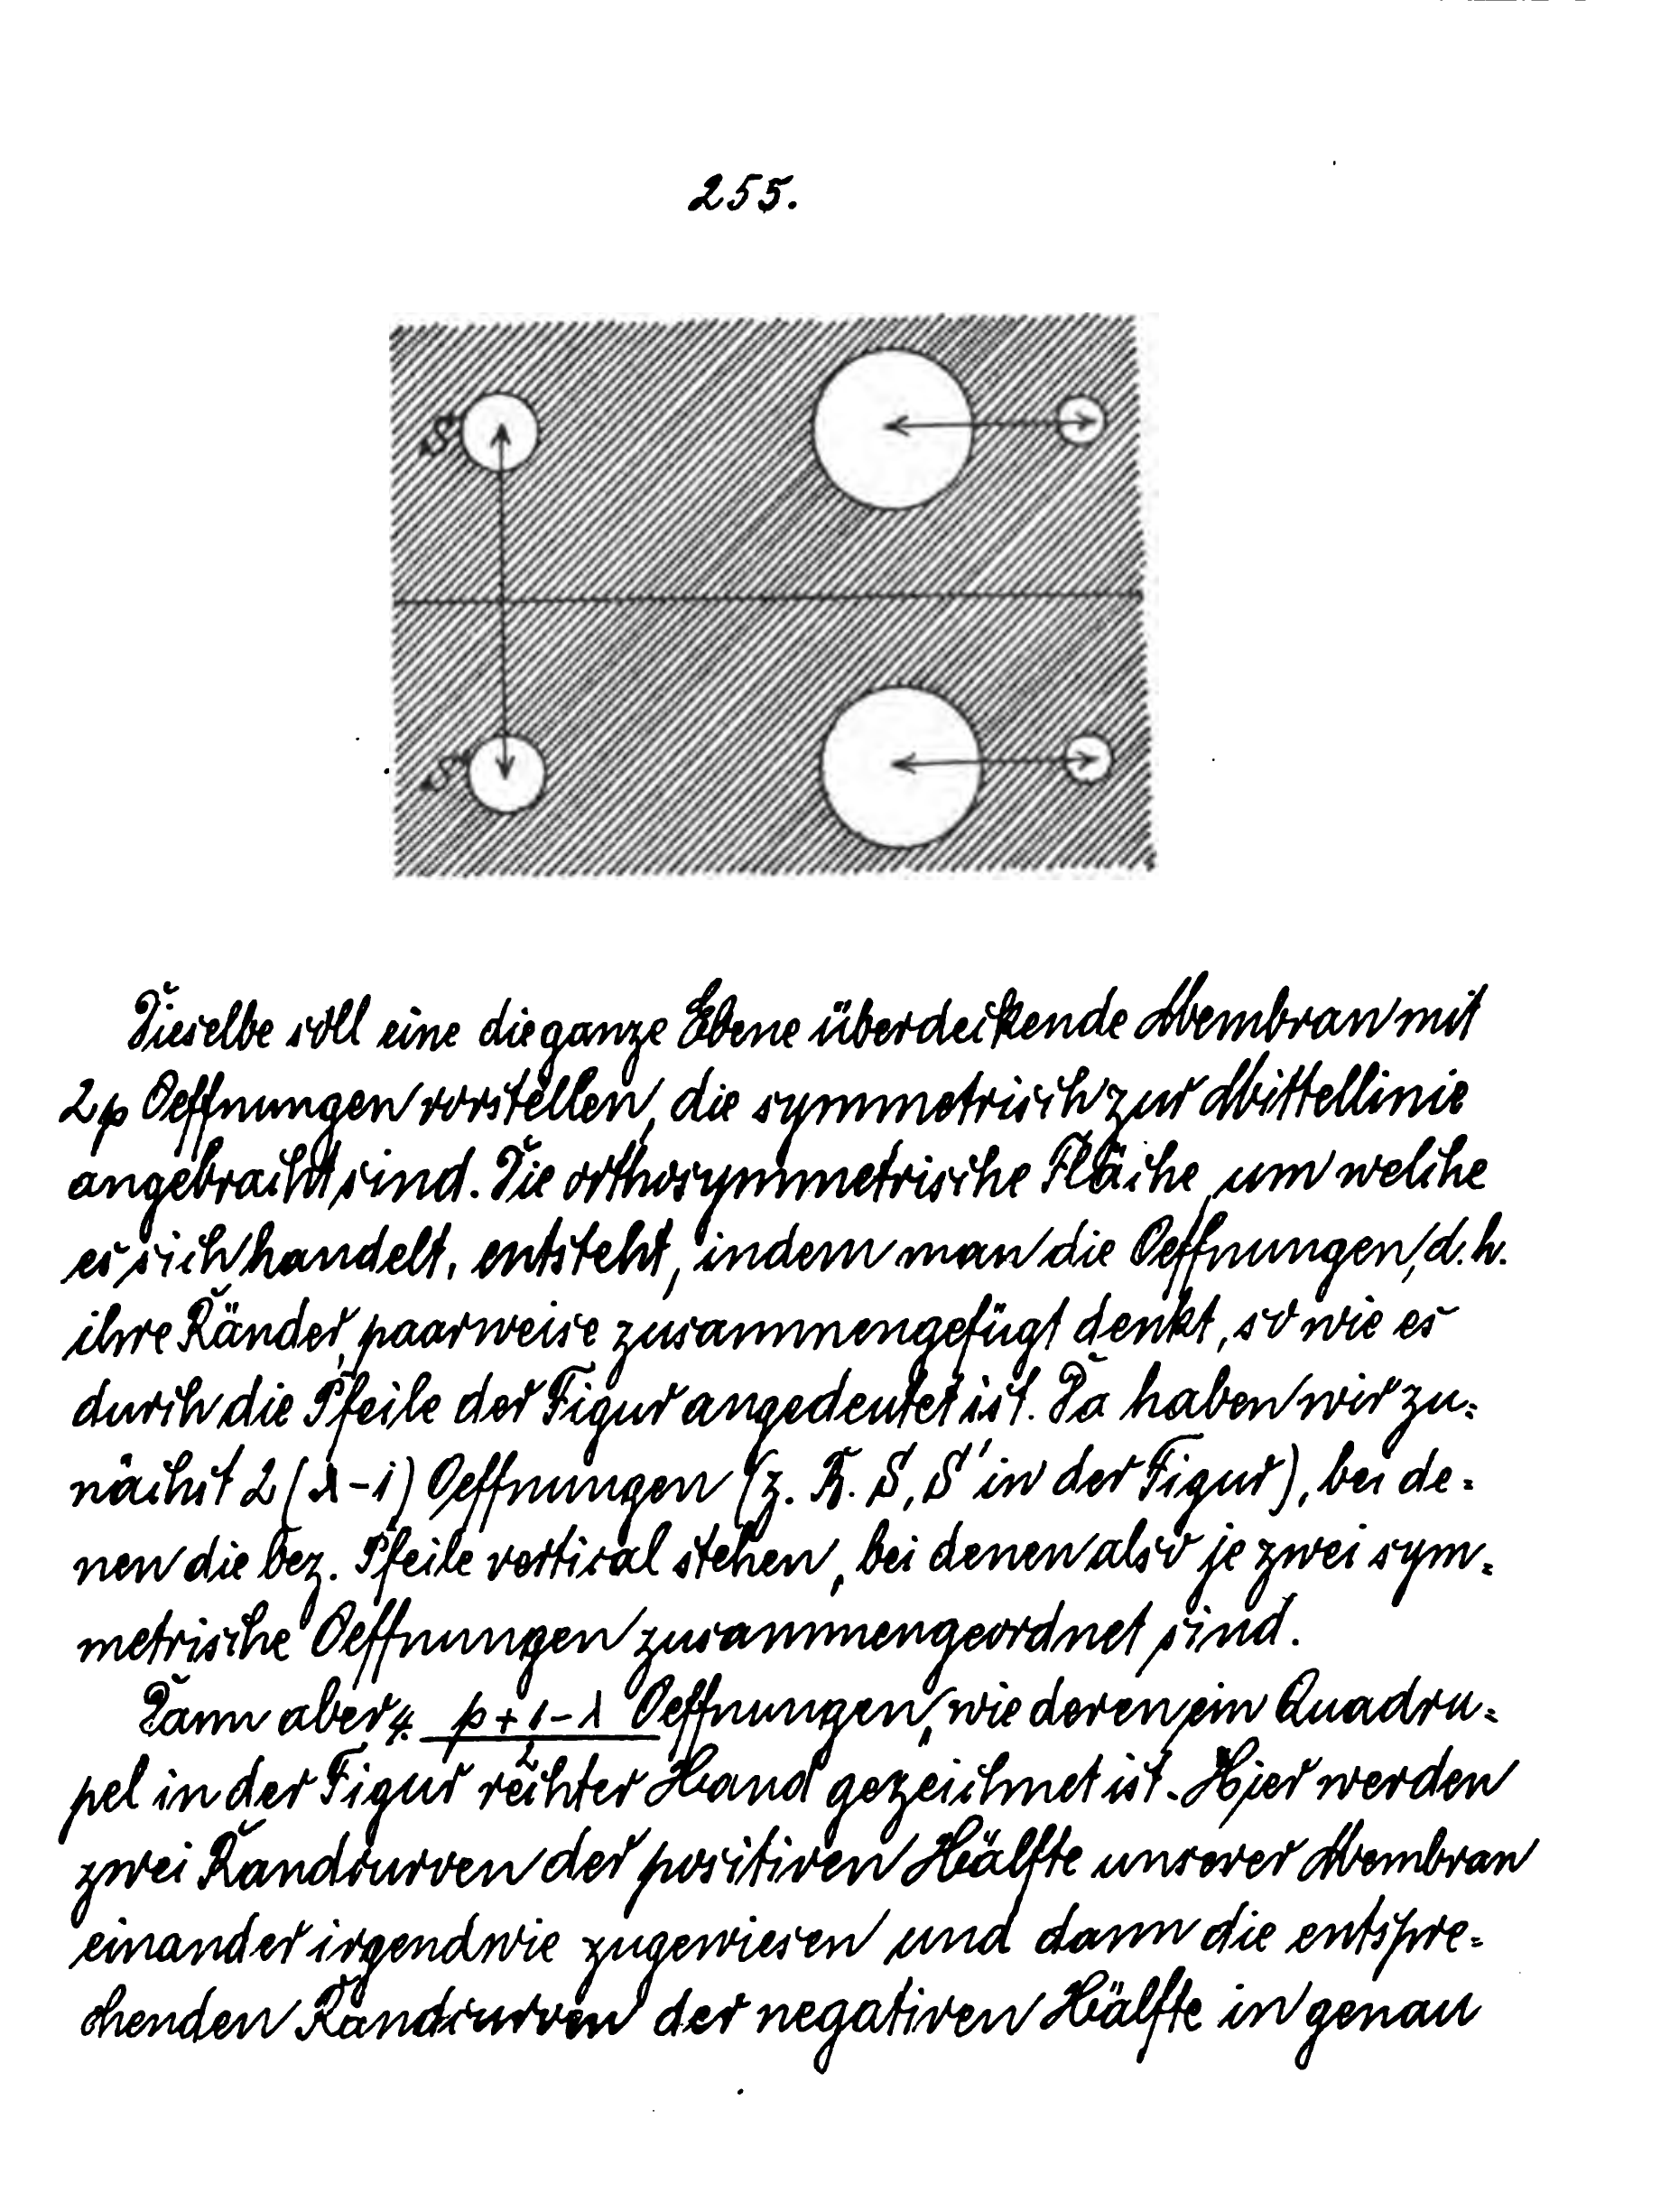 255.
S
S'
Dieselbe soll eine die ganze Ebene überdeckende Membran mit
2p Oeffnungen vorstellen, die symmetrisch zur Mittellinie
angebracht sind. Die orthosymmetrische Fläche, um welche
es sich handelt, entsteht, indem man die Oeffnungen, d. h.
ihre Ränder, paarweise zusammengefügt denkt, so wie es
durch die Pfeile der Figur angedeutet ist. Da haben wir zu=
nächst 2 (λ-1) Oeffnungen (z. B. S, S' in der Figur), bei de=
nen die bez. Pfeile vertical stehen, bei denen also je zwei sym=
metrische Oeffnungen zusammengeordnet sind.
Dann aber 4. (p+1-λ)/2 Oeffnungen, wie deren ein Quadru=
pel in der Figur rechter Hand gezeichnet ist. Hier werden
zwei Randcurven der positiven Hälfte unserer Membran
einander irgendwie zugewiesen und dann die entspre=
chenden Randcurven der negativen Hälfte in genau